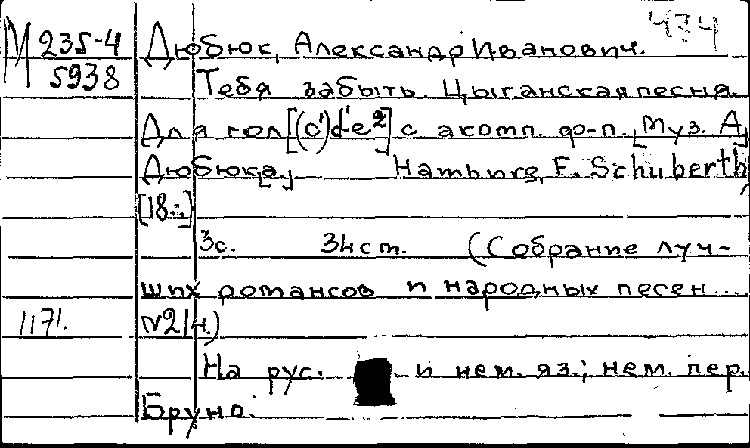 434
М 235-4
5938
Дюбюк, Александр Иванович.
Тебя забыть. Цыганская песня.
Для гол[(c')d'e²] с акомп. ф-п. [Муз. А.
Дюбюк[а.] Hamburg, F. Schuberth,
[18..]
3с. 34см. (Собрание луч-
ших романсов и народных песен...
1171. №21н.)
На рус. и нем. яз.; нем. пер.
Бруно.